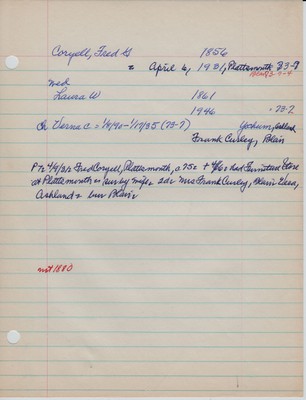 Coryell, Fred G 1856
= April 4, 1931, Plattsmouth 73-7
73-7-4
med
Laura W 1861
1946 73-7
Ch Verna C = 1/4/90 - 1/17/35 (73-7) Yochum,
Frank Curley, Blair
P 72 4/9/31 Fred Coryell, Plattsmouth, c 75 = 4/6 = had Furniture Store
at Plattsmouth = sur by wife = 2 d = Mrs Frank Curley, Blair
Ashland = bur Blair =
not 1880